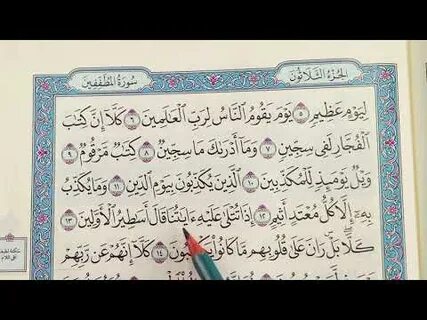 الجزء الثلاثون
سورة المطففين
لِيَوْمٍ عَظِيمٍ ٥ يَوْمَ يَقُومُ ٱلنَّاسُ لِرَبِّ ٱلْعَٰلَمِينَ ٦ كَلَّآ إِنَّ كِتَٰبَ
ٱلْفُجَّارِ لَفِى سِجِّينٍ ٧ وَمَآ أَدْرَىٰكَ مَا سِجِّينٌ ٨ كِتَٰبٌ مَّرْقُومٌ ٩
وَيْلٌ يَوْمَئِذٍ لِّلْمُكَذِّبِينَ ١٠ ٱلَّذِينَ يُكَذِّبُونَ بِيَوْمِ ٱلدِّينِ ١١ وَمَا يُكَذِّبُ
بِهِۦٓ إِلَّا كُلُّ مُعْتَدٍ أَثِيمٍ ١٢ إِذَا تُتْلَىٰ عَلَيْهِ ءَايَٰتُنَا قَالَ أَسَٰطِيرُ ٱلْأَوَّلِينَ ١٣
كَلَّا ۖ بَلْ ۜ رَانَ عَلَىٰ قُلُوبِهِم مَّا كَانُوا۟ يَكْسِبُونَ ١٤ كَلَّآ إِنَّهُمْ عَن رَّبِّهِمْ